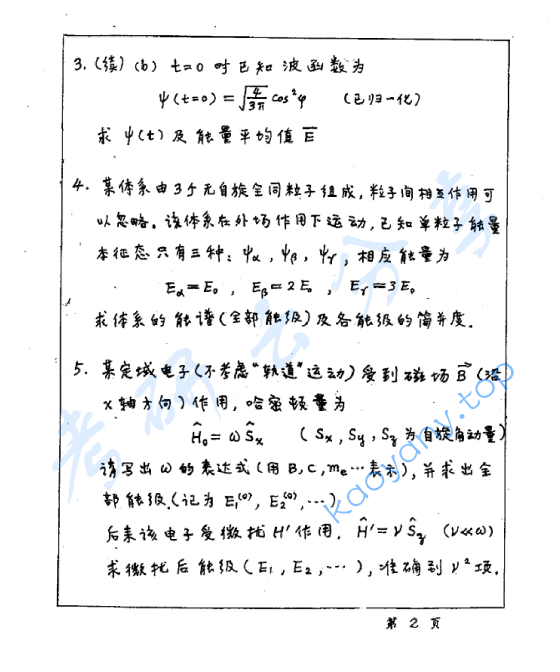 3. (续) (b) t=0 时已知波函数为
ψ(t=0) = √(4/3π) cos²φ (已归一化)
求 ψ(t) 及能量平均值 Ē
4. 某体系由3个无自旋全同粒子组成, 粒子间相互作用可
以忽略。该体系在外场作用下运动, 已知单粒子能量
本征态只有三种: ψα, ψβ, ψγ, 相应能量为
Eα=E₀, Eβ=2E₀, Eγ=3E₀
求体系的能谱(全部能级)及各能级的简并度.
5. 某定域电子(不考虑"轨道"运动)受到磁场 B⃗ (沿
x轴方向)作用, 哈密顿量为
Ĥ₀ = ωŜx (Sx, Sy, Sz 为自旋角动量)
请写出 ω 的表达式(用 B, c, mₑ…表示), 并求出全
部能级.(记为 E₁⁽⁰⁾, E₂⁽⁰⁾, …)
后来该电子受微扰 H′ 作用, Ĥ′=νŜy (ν≪ω)
求微扰后能级(E₁, E₂, …), 准确到 ν² 项.
第 2 页
考研云分享
kaoyany.top